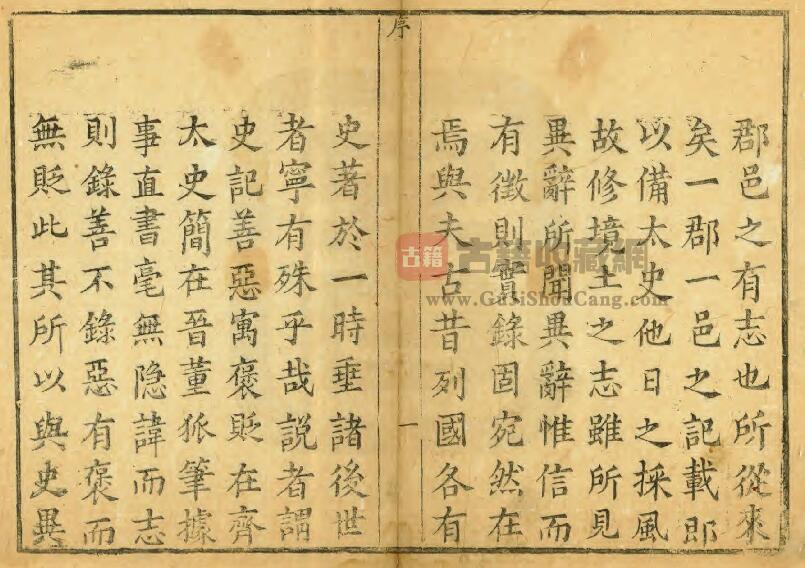 序
郡邑之有志也所從來
矣一郡一邑之記載即
以備太史他日之採風
故修境土之志雖所見
異辭所聞異辭惟信而
有徵則實錄固宛然在
焉與夫古昔列國各有
一
史著於一時垂諸後世
者寧有殊乎哉説者謂
史記善惡寓褒貶在齊
太史簡在晉董狐筆據
事直書毫無隐諱而志
則錄善不錄惡有褒而
無貶此其所以與史異
古籍
古籍收藏網
www.GuJiShouCang.com